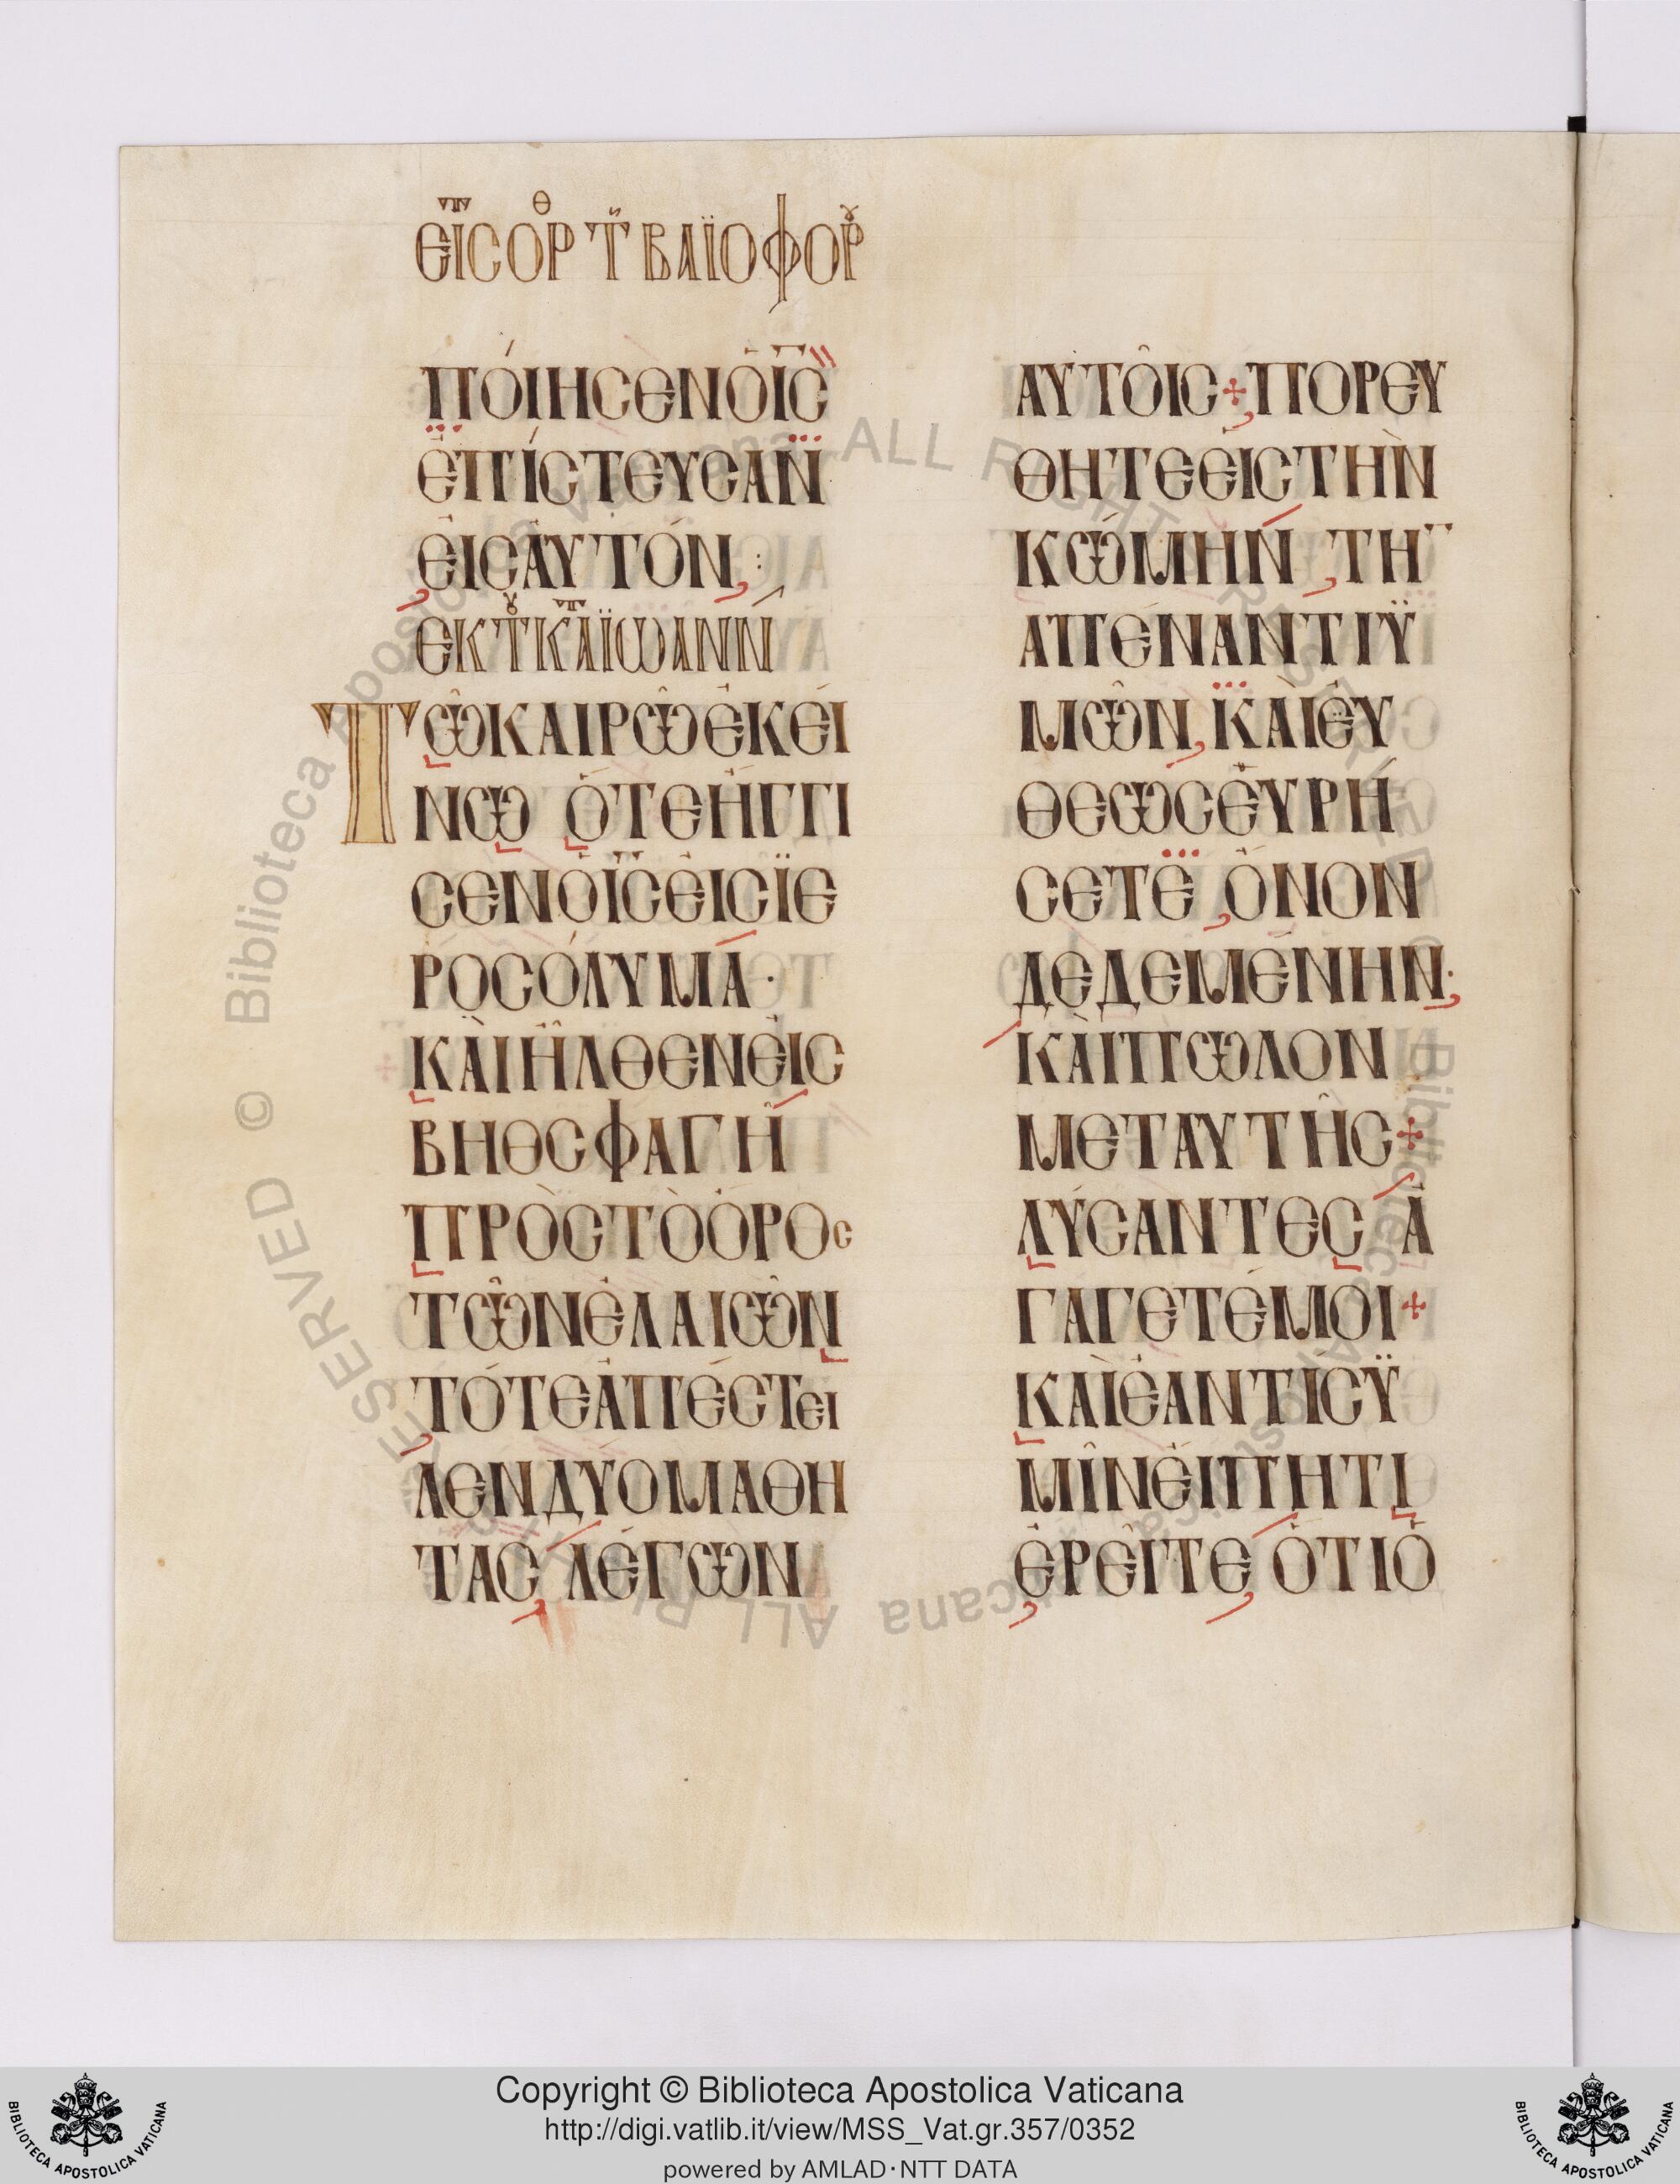 ΕΙΣ ΟΡΘ Τ ΒΑΪΟΦΟΡ
ΠΌΙΗϹΕΝΟΙϹ
ἘΠΊϹΤΕΥϹΑΝ
ἘΙϹΑΥΤΌΝ:
ΕΚ Τ Κ ΑΪΩΑΝΝ
ΤΩΚΑΙΡΩΕΚΕΙ
ΝΩ ὍΤΕΗΓΓΙ
ϹΕΝΟΙϹΕΙϹΪΕ
ΡΟϹΌΛΥΜΑ·
ΚΑΙΗΛΘΕΝΕΙϹ
ΒΗΘϹΦΑΓΗ
ΠΡΟϹΤΟΟΡΟϹ
ΤΩΝΕΛΑΙΩΝ
ΤΌΤΕΑΠΕϹΤΕΙ
ΛΕΝΔΥΟΜΑΘΗ
ΤΑϹ ΛΕΓΩΝ
ΑΥΤΟΙϹ+ΠΟΡΕΥ
ΘΗΤΕΕΙϹΤΗΝ
ΚΩΜΗΝ,ΤΗ
ΑΠΕΝΑΝΤΙΫ
ΜΩΝ,ΚΑΙΕΥ
ΘΕΩϹΕΥΡΗ
ϹΕΤΕ,ΟΝΟΝ
ΔΕΔΕΜΕΝΗΝ·
ΚΑΙΠΩΛΟΝ
ΜΕΤΑΥΤΗϹ+
ΛΥϹΑΝΤΕϹ Α
ΓΑΓΕΤΕΜΟΙ+
ΚΑΙΕΑΝΤΙϹΫ
ΜΙΝΕΙΠΗΤΙ
ΕΡΕΙΤΕ ΟΤΙΟ
© Biblioteca Apostolica Vaticana ALL RIGHTS RESERVED
Copyright © Biblioteca Apostolica Vaticana
http://digi.vatlib.it/view/MSS_Vat.gr.357/0352
powered by AMLAD·NTT DATA
BIBLIOTECA APOSTOLICA VATICANA
BIBLIOTECA APOSTOLICA VATICANA